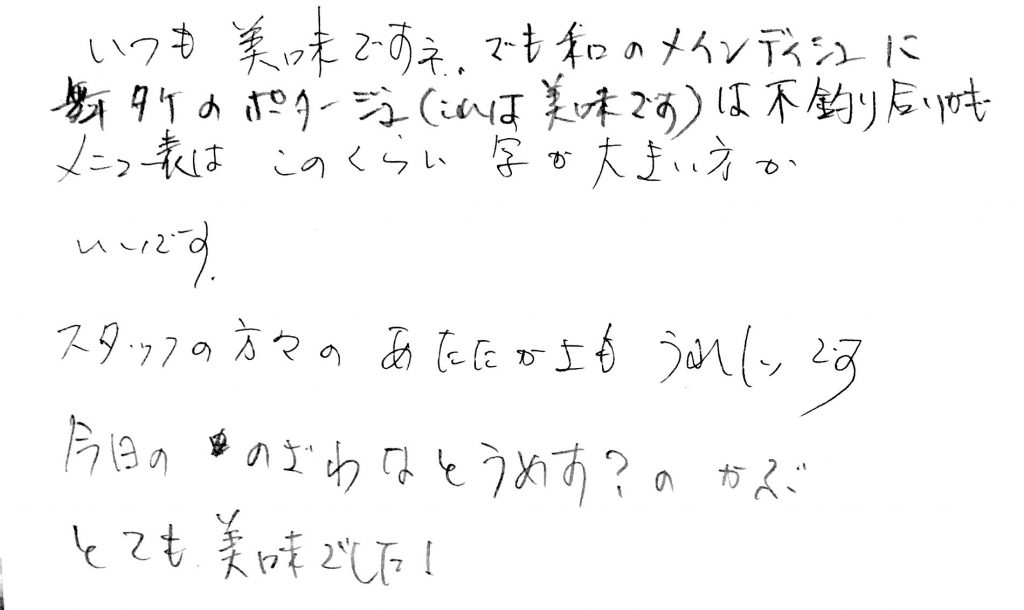 いつも 美味ですネ。でも和のメインディシュに
舞タケのポタージュ(これは美味です)は不釣り合いかも
メニュー表は このくらい 字が大きい方が
いいです。
スタッフの方々の あたたかさも うれしいです
今日の のざわなとうめす?の かぶ
とても 美味でした!